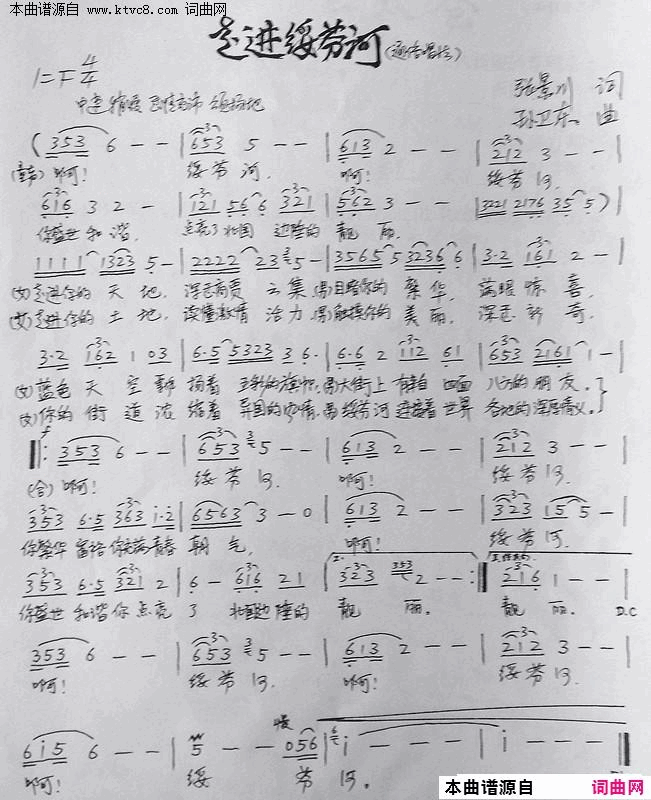 本曲谱源自
www.ktvc8.com 词曲网
走进绥芬河(通俗唱法)
1=F 4/4
中速 稍慢
张景川 词
孙卫东 曲
(353 6 - - | 653 5 - - | 613 2 - - | 212 3 - - |
啊! 绥芬河, 啊! 绥芬河,
616 3 2 - | 121 56 6 321 | 562 3 - - | 3221 2176 35 5 ) |
你盛世和谐, 点亮了北国 边陲的 靓丽.
1111 1323 5 - | 2222 23 5 - | 3565 5 3236 6 | 3·2 161 2 - |
(女)走进你的 天地, 云集,(男)目睹你的 繁华, 惊喜,
(女)走进你的 土地, 读懂激情 活力,(男)触摸你的 美丽, 新奇,
3·2 162 1 03 | 6·5 5323 3 6· | 6·6 2 112 61 | 653 2161 1 - |
(女)蓝色天空 扬着 的旗帜,(男)大街上 有来自 四面 八方的朋友.
(女)你的街道浓缩着 异国的风情,(男)绥芬河连接着世界 各地的深厚情义.
353 6 - - | 653 5 - - | 613 2 - - | 212 3 - - |
(合)啊! 绥芬河, 啊! 绥芬河,
353 6·5 363 i·2 | 6563 3 - 0 | 613 2 - - | 323 15 5 - |
你繁华富裕你充满青春 朝气, 啊! 绥芬河,
353 6·5 321 2 | 6 - 616 21 | 323 353 2 - - :| 216 1 - - |
你盛世和谐你点亮 了 北国边陲的 靓丽. 靓丽. D.C
353 6 - - | 653 5 - - | 613 2 - - | 212 3 - - |
啊! 绥芬河, 啊! 绥芬河,
慢
6i5 6 - - | 5 - - 056 | i - - - | i - - - ||
啊! 绥芬河.
本曲谱源自 词曲网